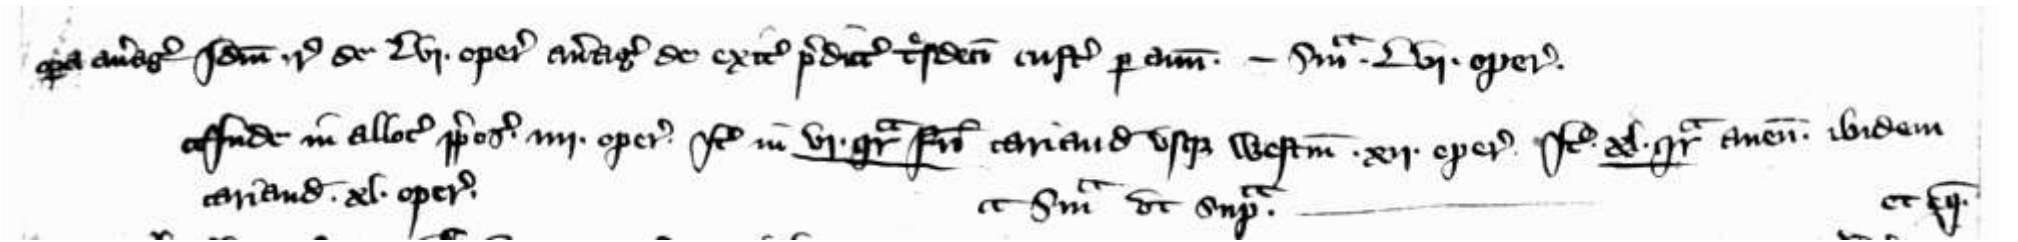 opa au'ag' Idm r' de Lvj. oper' au'ag' de exit' p'dict' t'sdeci custu' p ann. – Sma. Lvj. oper'.
Inde in alloc' p'pos'. iiij. oper'. It' in vj. qra fru' cariand' usq, Westm. xij. oper'. It' xl. qra auen. ibidem
cariand. xl. oper'.
et Sma ut supa.
et eq.